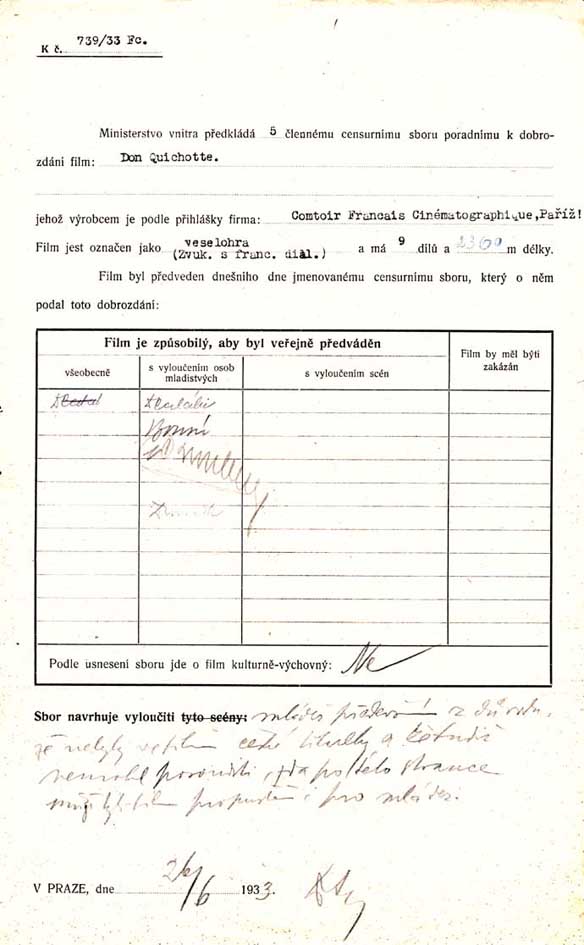 K č. 739/33 Fc.
Ministerstvo vnitra předkládá 5 člennému censurnímu sboru poradnímu k dobro-
zdání film: Don Quichotte.
jehož výrobcem je podle přihlášky firma: Comtoir Francais Cinématographique,Paříž!
Film jest označen jako veselohra a má 9 dílů a 2360 m délky.
(Zvuk. s franc. diál.)
Film byl předveden dnešního dne jmenovanému censurnímu sboru, který o něm
podal toto dobrozdání:
Film je způsobilý, aby byl veřejně předváděn
Film by měl býti
zakázán
všeobecně
s vyloučením osob
mladistvých
s vyloučením scén
Podle usnesení sboru jde o film kulturně-výchovný: Ne
Sbor navrhuje vyloučiti tyto scény: mládež z důvodu,
že nebyly české titulky a
nemohl posouditi, zda po této stránce
film i pro mládež.
V PRAZE, dne 1933.